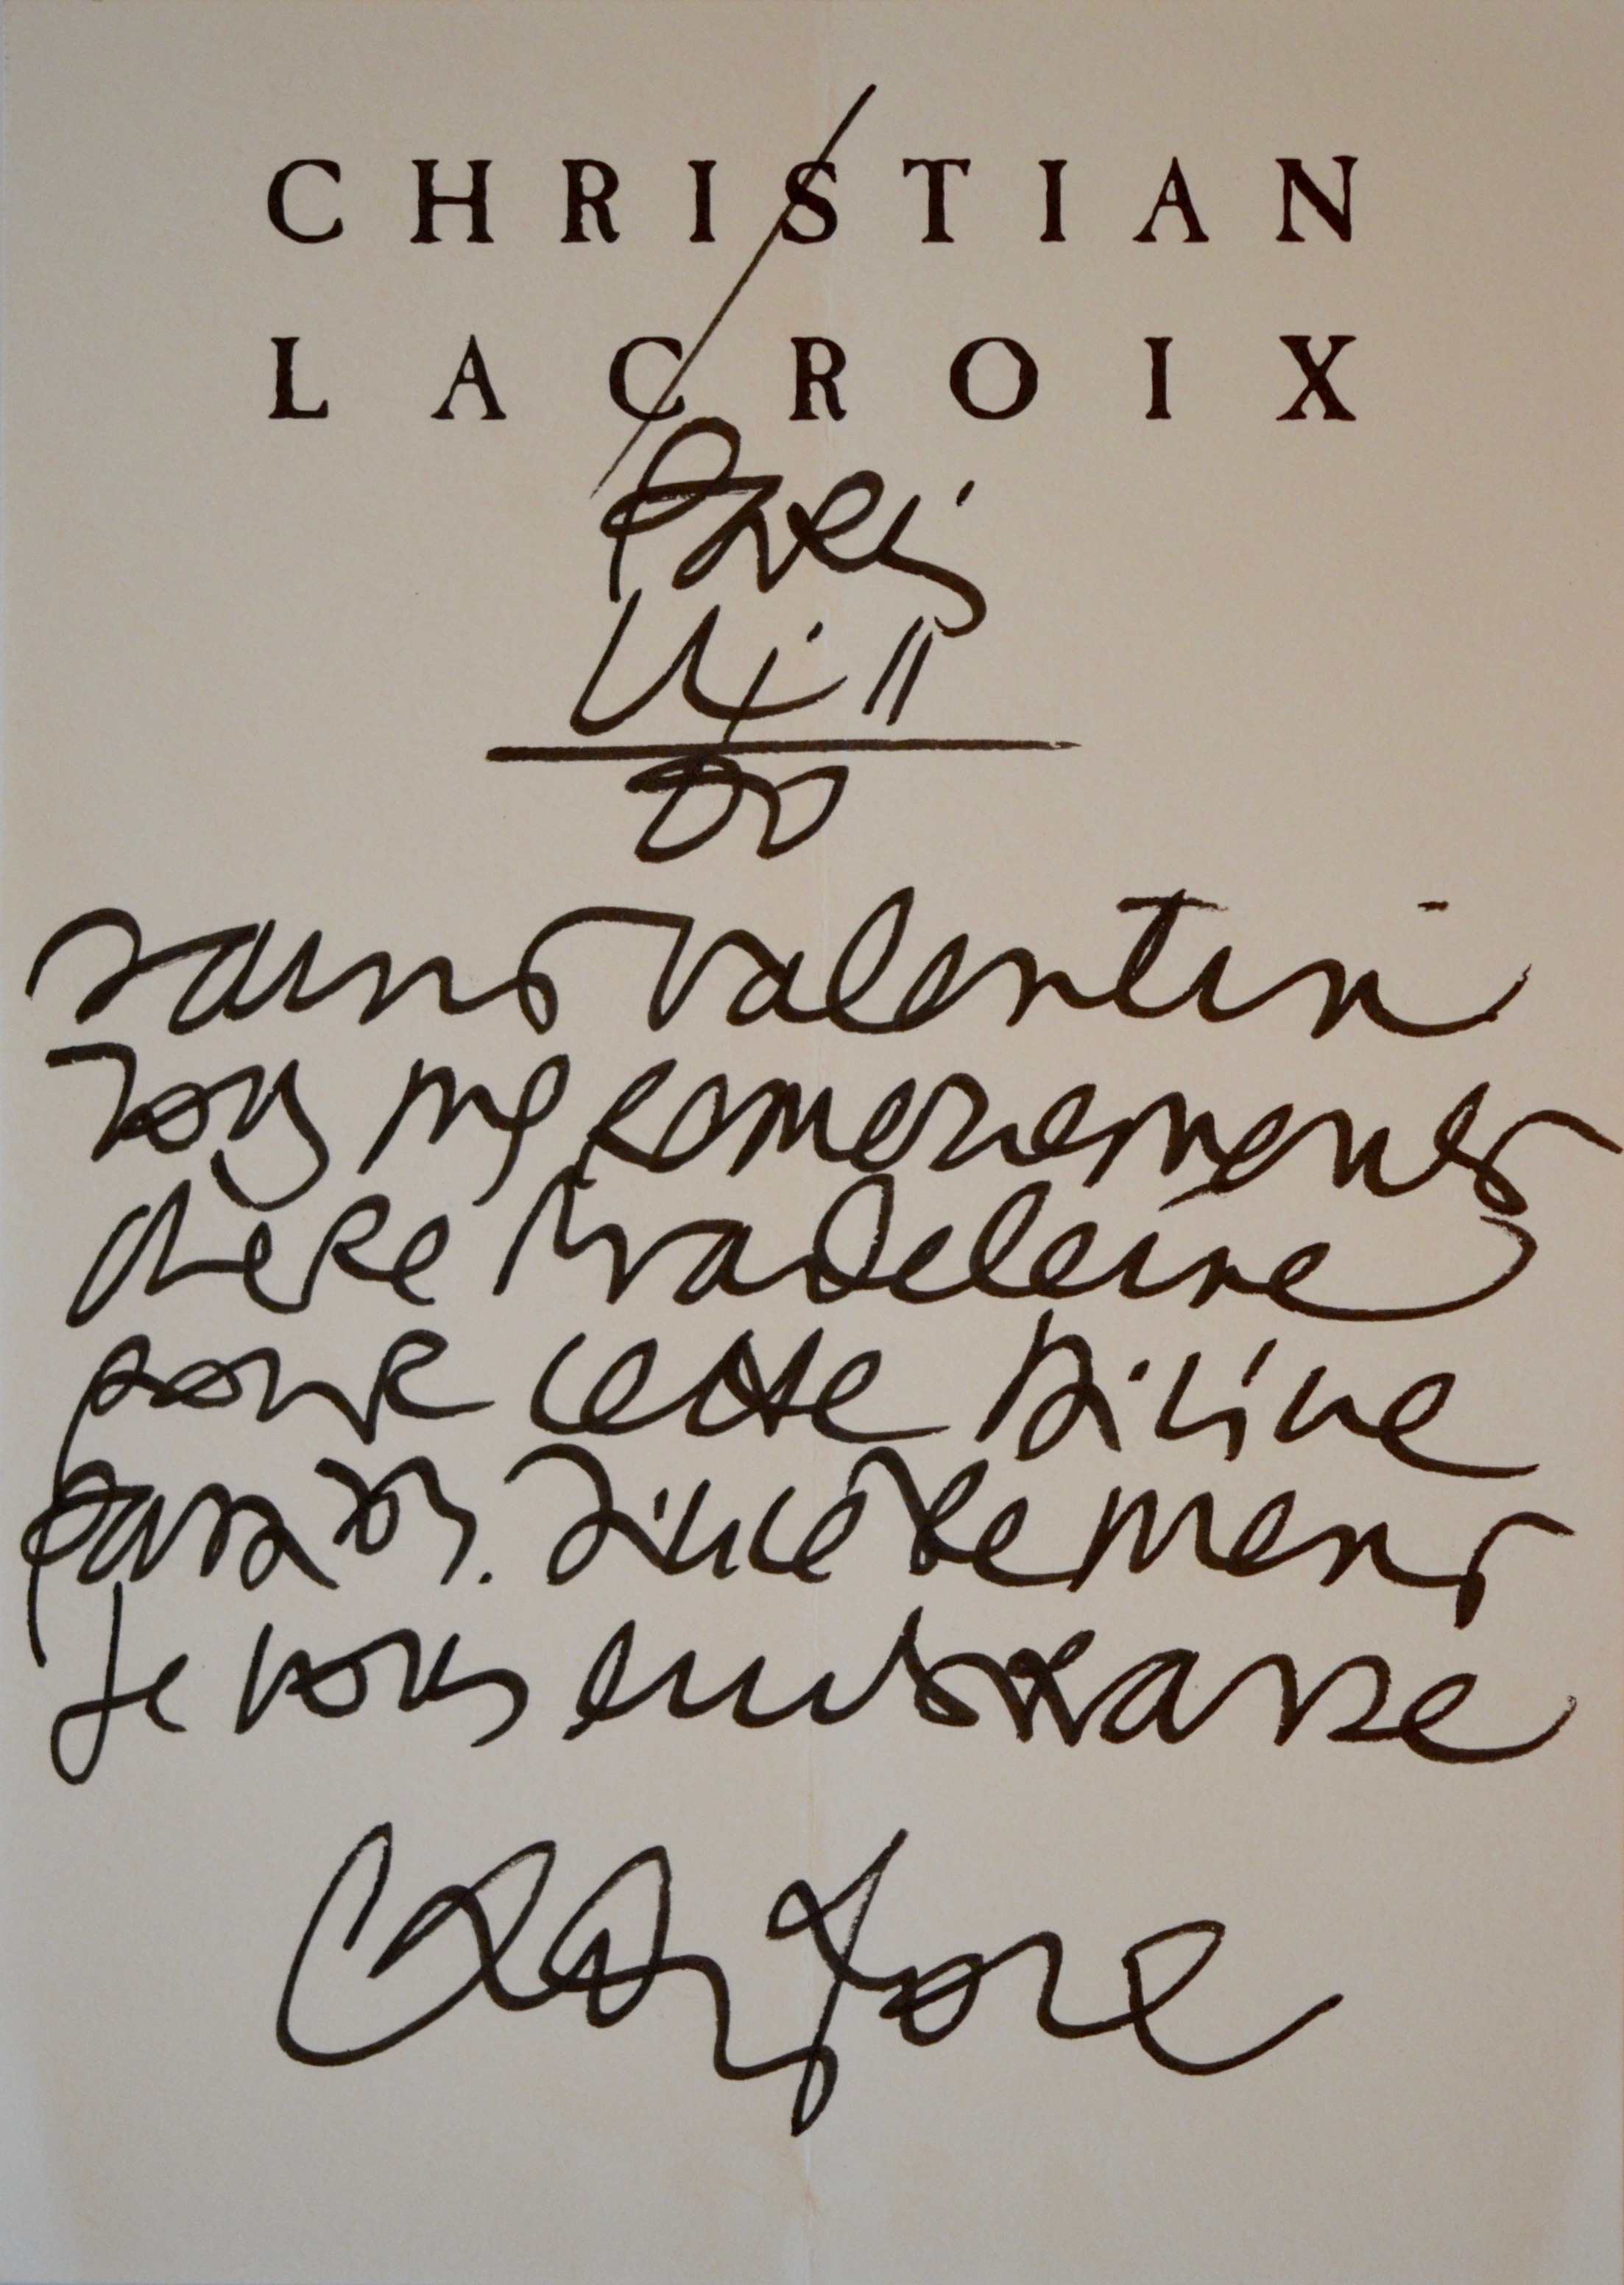 CHRISTIAN
LACROIX
Paris
14 . II
00
Saint Valentin
Tous mes remerciements
chère Madeleine
pour cette divine
Sincèrement
Je vous embrasse